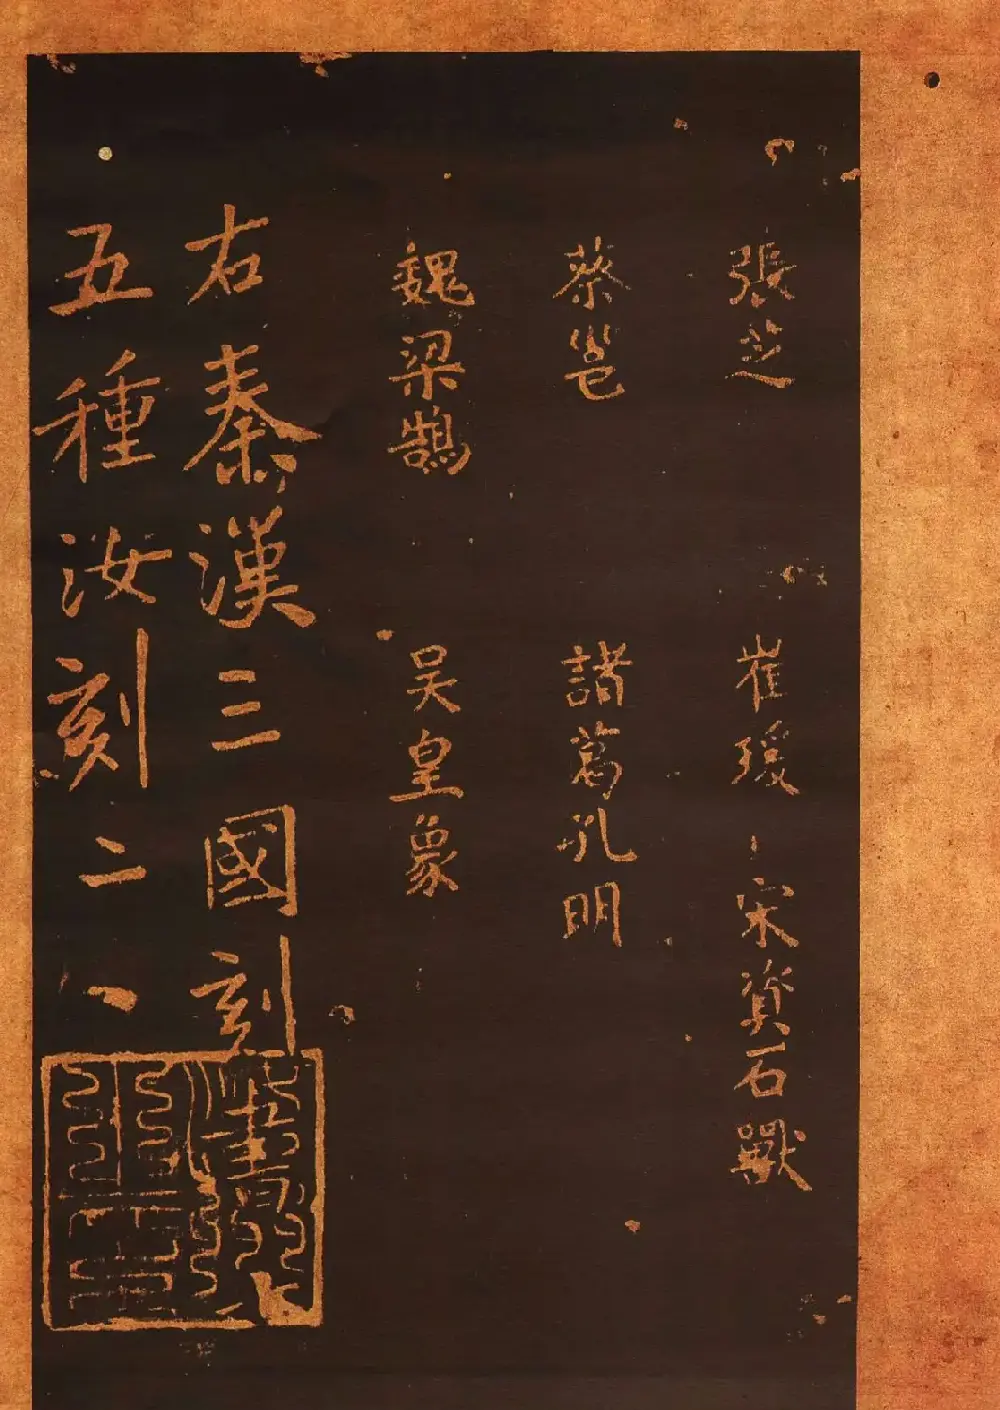 張芝 崔瑗 宋資石獸
蔡邕 諸葛孔明
魏梁鵠 吴皇象
右秦漢三國刻
五種汝刻二